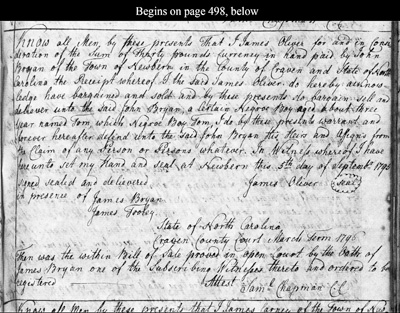 Begins on page 498, below
Know all Men, by these presents That I James Oliver for and in Consi
deration of the Sum of Thirty pounds currency in hand paid by John
Bryan of the Town of Newbern in the County of Craven and State of North
Carolina the Receipt whereof I the said James Oliver do hereby acknow
ledge have bargained and sold and by these presents do bargain sell and
deliver unto the said John Bryan, a Certain Negroe Boy aged about three
years named Tom, which Negroe Boy Tom, I do by these presents warrant and
forever hereafter defend unto the said John Bryan his Heirs and Assigns from
the Claim of any Person or Persons whatever. In Witness whereof I have
hereunto set my Hand and seal at Newbern this 5th day of September 1795
signed sealed and delivered James Oliver Seal
in presence of James Bryan
James Tooley
State of North Carolina
Craven County Court March Term 1796
Then was the within Bill of Sale proved in open Court by the Oath of
James Bryan one of the Subscribing Witnesses thereto and ordered to be
registered Attest Saml. Chapman C.C
Know all Men by these presents that I James Carney of the Town of New